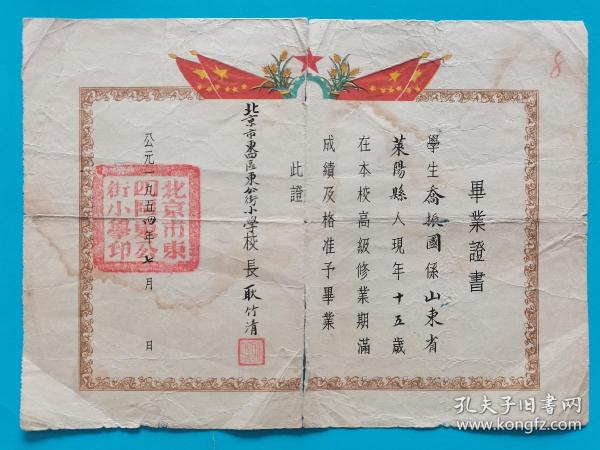 8
畢業證書
學生喬振國係山東省
萊陽縣人現年十五歲
在本校高級修業期滿
成績及格准予畢業
此證
北京市東四區東公街小學校長耿竹清
公元一九五四年七月 日
北京市東
四區東公
街小學印
孔夫子旧书网
www.kongfz.com